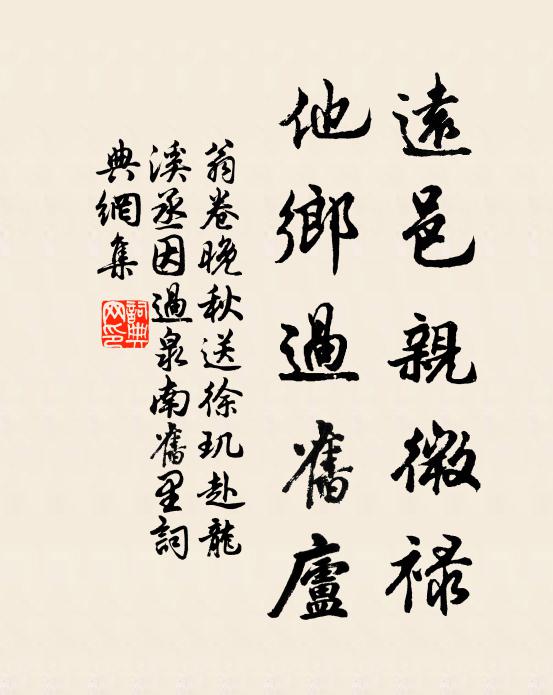 遠邑親微禄
他鄉過舊廬
翁卷晚秋送徐玑赴龍
溪丞因過泉南舊里詞
典網集
詞典
网印